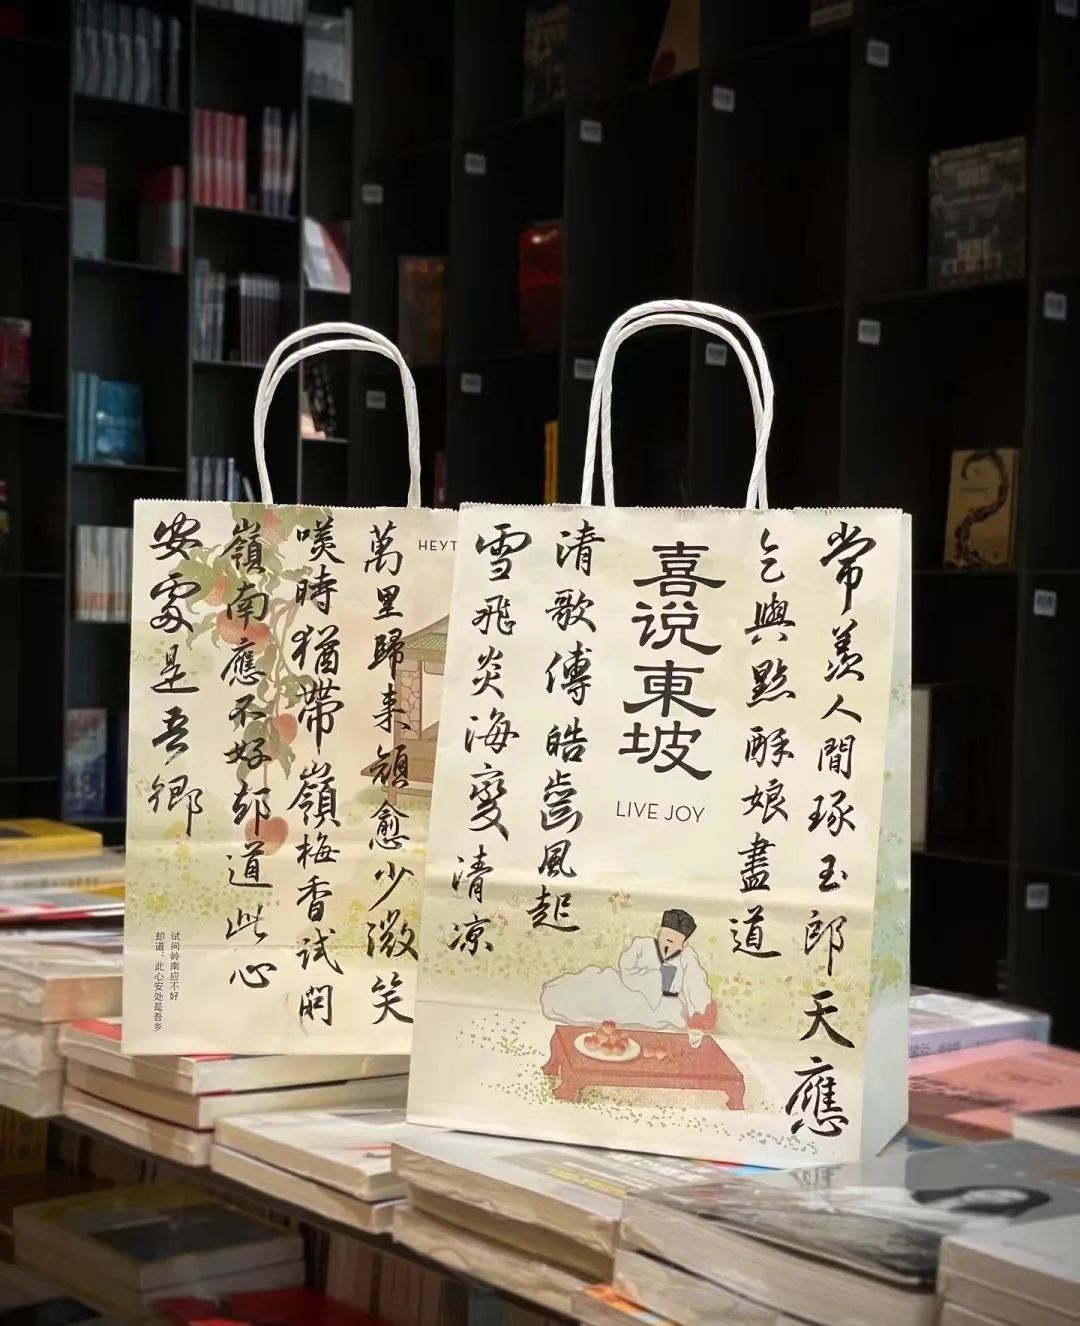 常羨人間琢玉郎 天應
乞與點酥娘盡道
喜说東坡
LIVE JOY
清歌傳皓齒風起
雪飛炎海變清凉
HEYT
萬里歸来顔愈少微笑
咲時猶帶嶺梅香試問
嶺南應不好却道此心
安處是吾鄉
试问岭南应不好
却道：此心安处是吾乡